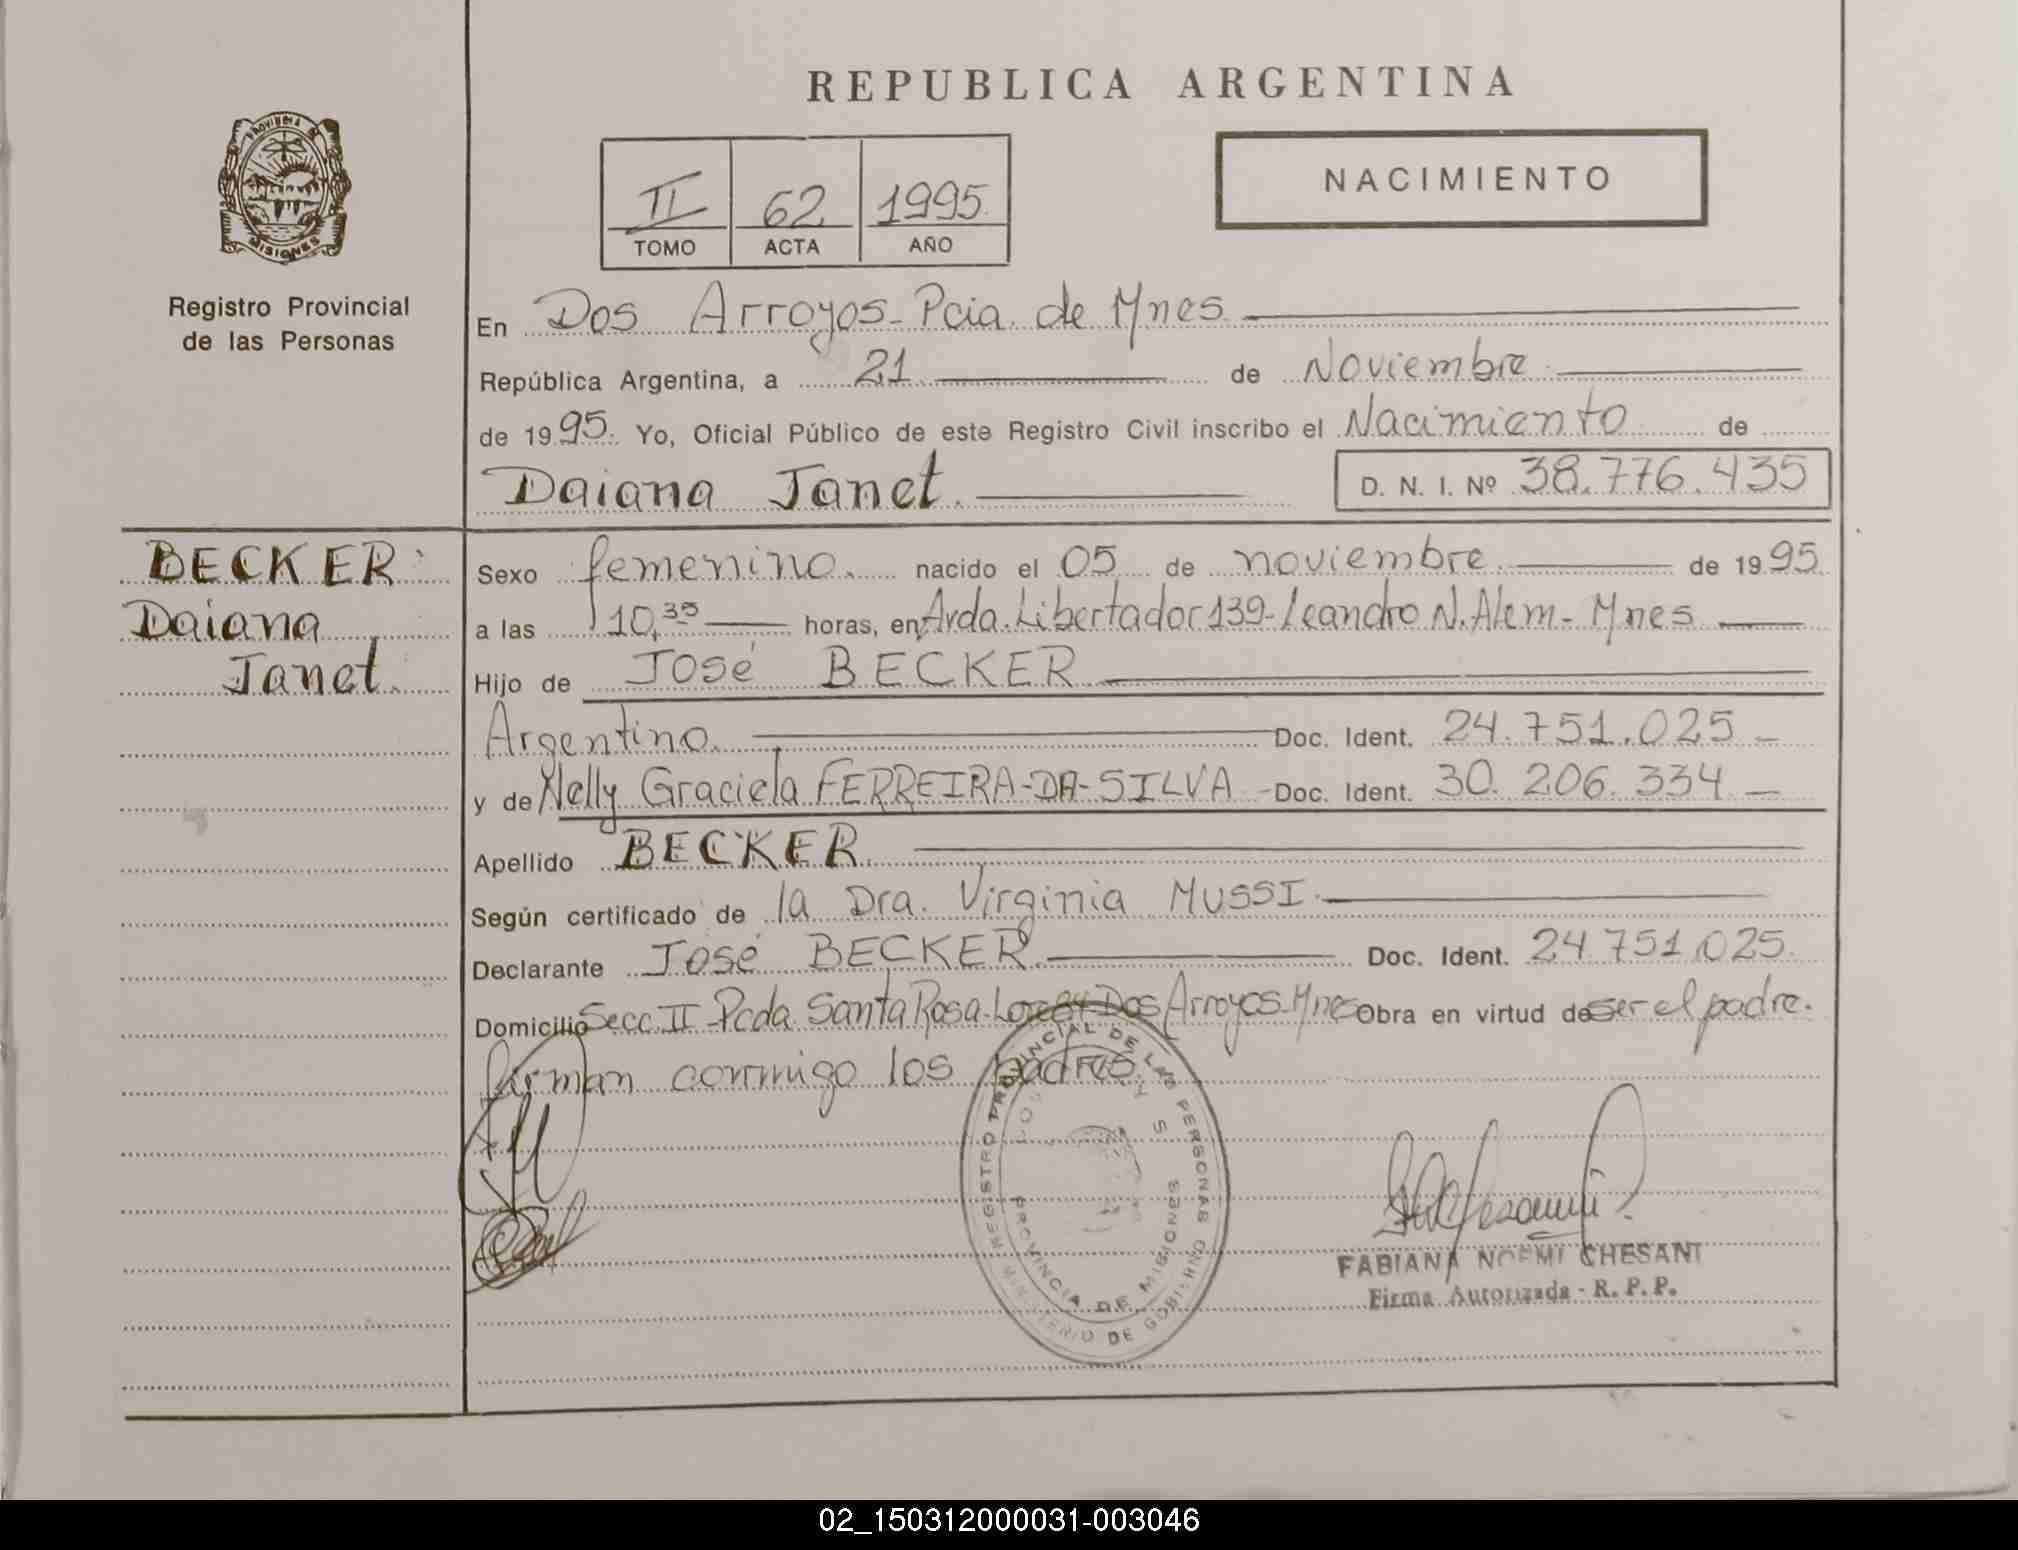 REPUBLICA ARGENTINA
PROVINCIA DE MISIONES
Registro Provincial
de las Personas
II 62 1995
TOMO ACTA AÑO
NACIMIENTO
En Dos Arroyos - Pcia. de Mnes
República Argentina, a 21 de Noviembre
de 1995. Yo, Oficial Público de este Registro Civil inscribo el Nacimiento de
Daiana Janet. D. N. I. Nº 38.776.435
BECKER
Daiana
Janet.
Sexo femenino. nacido el 05 de noviembre de 1995.
a las 10,35 horas, en Avda. Libertador 139 - Leandro N. Alem - Mnes
Hijo de José BECKER
Argentino. Doc. Ident. 24.751.025 -
y de Nelly Graciela FERREIRA-DA-SILVA - Doc. Ident. 30.206.334 -
Apellido BECKER
Según certificado de la Dra. Virginia MUSSI.
Declarante José BECKER. Doc. Ident. 24.751.025.
Domicilio Secc. II - Pcda Santa Rosa - Dos Arroyos - Mnes Obra en virtud de ser el padre.
Firman conmigo los padres.
REGISTRO PROVINCIAL DE LAS PERSONAS
MINISTERIO DE GOBIERNO
PROVINCIA DE MISIONES
FABIANA NOEMI CHESANI
Firma Autorizada - R. P. P.
02_150312000031-003046